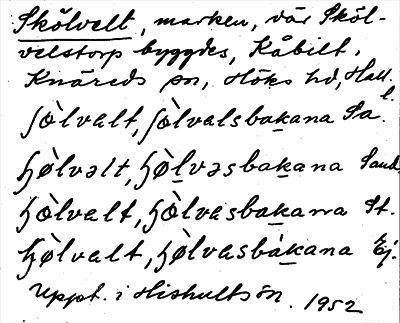 Skölvelt, marken, där Sköl-
velstorp byggdes, Kåbilt,
Knäreds sn, Höks hd, Hall.
ʃœ̀lvalt, ʃœ̀lvalsbakana Sal.
ɧø̀lvəlt, ɧø̀lvəsbakana Sand.
ɧœ̀lvalt, ɧœ̀lvasbakana St.
ɧø̀lvalt, ɧø̀lvasbakana Ej.
Uppt. i Hishults sn. 1952